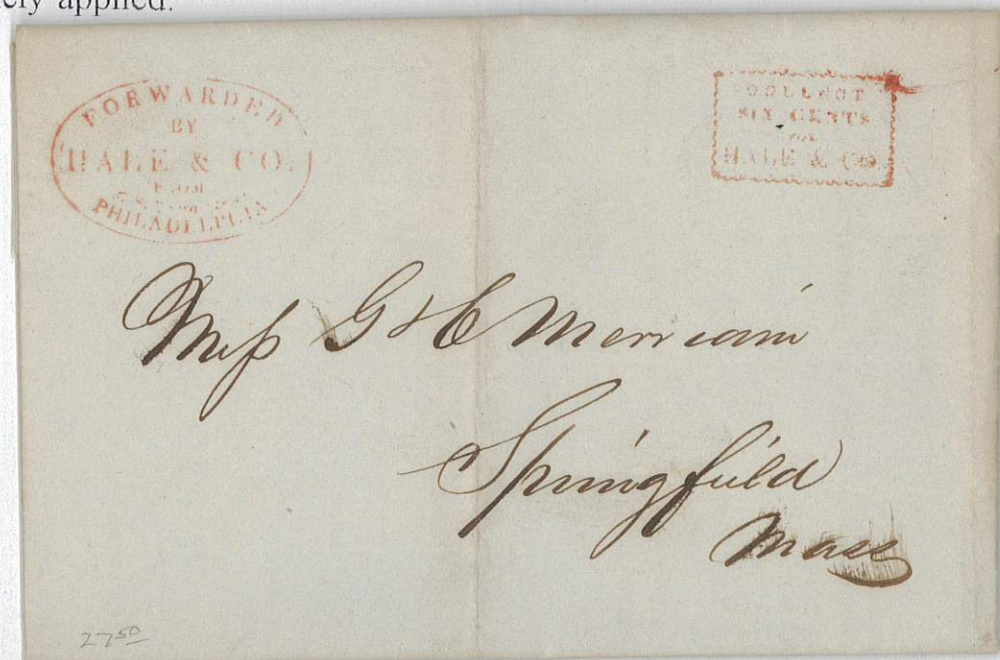 ely applied.
FORWARDED
BY
HALE & CO.
FROM
PHILADELPHIA
COLLECT
SIX CENTS
FOR
HALE & CO.
Mess G & C Merriam
Springfield
Mass
27 50